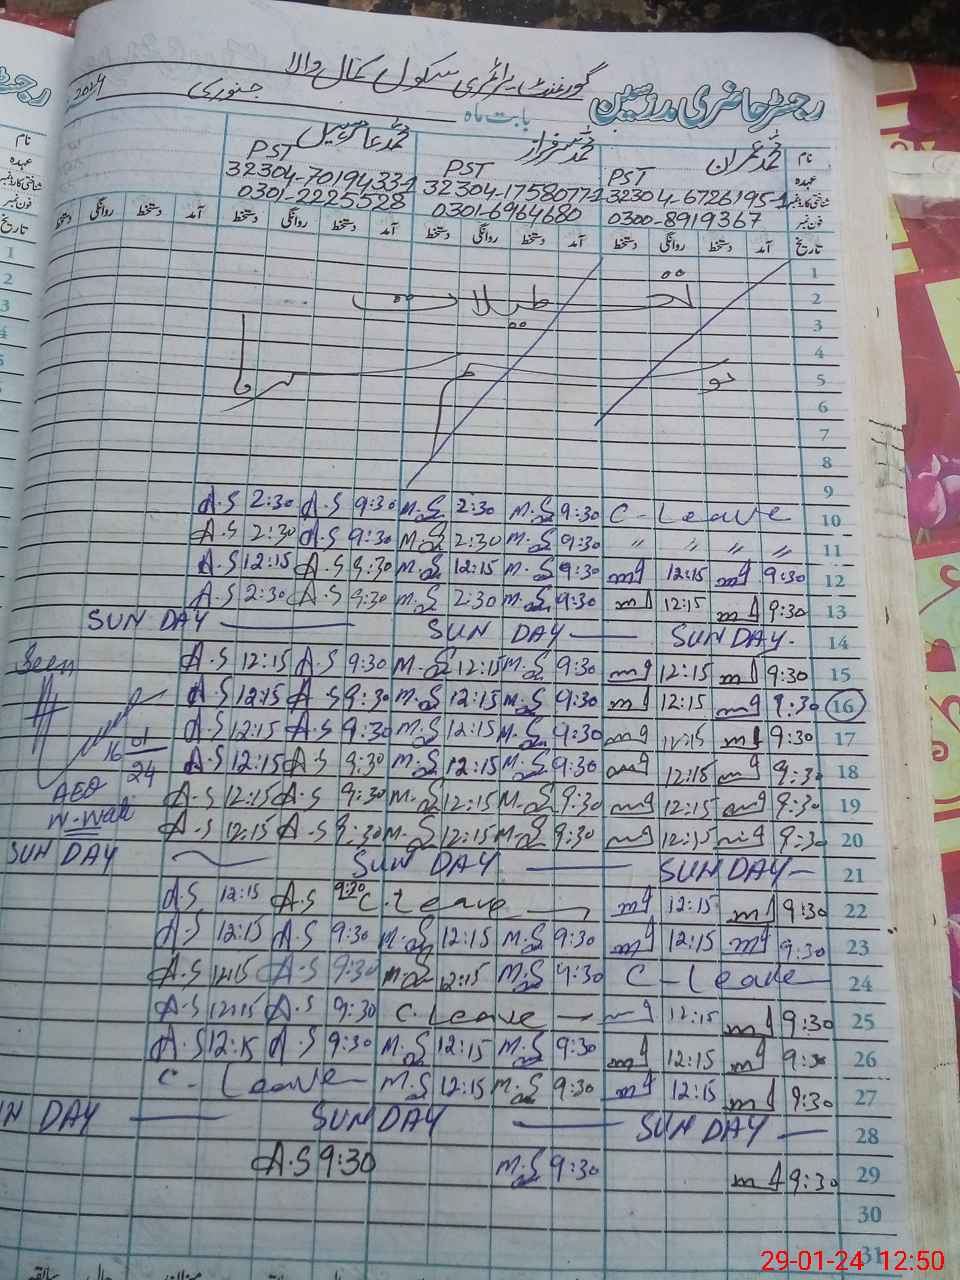 رجسٹر حاضری مدرسین
گورنمنٹ پرائمری سکول کمال والا
بابت ماہ جنوری 2024
نام محمد عمران محمد سرفراز
عہدہ PST PST PST
شناختی کارڈ نمبر 32304-6726195-1 32304-1758077-1 32304-7019433-1
فون نمبر 0300-8919367 0301-6964680 0301-2225528
تاریخ آمد دستخط روانگی دستخط آمد دستخط روانگی دستخط آمد دستخط روانگی دستخط
1
2
3
4
5
6
7
8
9
A.S 2:30 A.S 9:30 M.S 2:30 M.S 9:30 C-Leave 10
A.S 2:30 A.S 9:30 M.S 2:30 M.S 9:30 〃 〃 〃 〃 11
A.S 12:15 A.S 9:30 M.S 12:15 M.S 9:30 12:15 9:30 12
A.S 2:30 A.S 9:30 M.S 2:30 M.S 9:30 12:15 9:30 13
SUNDAY SUNDAY SUNDAY 14
Seen A.S 12:15 A.S 9:30 M.S 12:15 M.S 9:30 12:15 9:30 15
A.S 12:15 A.S 9:30 M.S 12:15 M.S 9:30 12:15 9:30 16
16 01 A.S 12:15 A.S 9:30 M.S 12:15 M.S 9:30 12:15 9:30 17
24 A.S 12:15 A.S 9:30 M.S 12:15 M.S 9:30 12:15 9:30 18
AEO A.S 12:15 A.S 9:30 M.S 12:15 M.S 9:30 12:15 9:30 19
A.S 12:15 A.S 9:30 M.S 12:15 M.S 9:30 12:15 9:30 20
SUNDAY SUNDAY SUNDAY 21
A.S 12:15 A.S 9:30 C.Leave 12:15 9:30 22
A.S 12:15 A.S 9:30 M.S 12:15 M.S 9:30 12:15 9:30 23
A.S 12:15 A.S 9:30 M.S 12:15 M.S 9:30 C-Leave 24
A.S 12:15 A.S 9:30 C.Leave 12:15 9:30 25
A.S 12:15 A.S 9:30 M.S 12:15 M.S 9:30 12:15 9:30 26
C-Leave M.S 12:15 M.S 9:30 12:15 9:30 27
SUNDAY SUNDAY 28
A.S 9:30 M.S 9:30 9:30 29
30
31
29-01-24 12:50